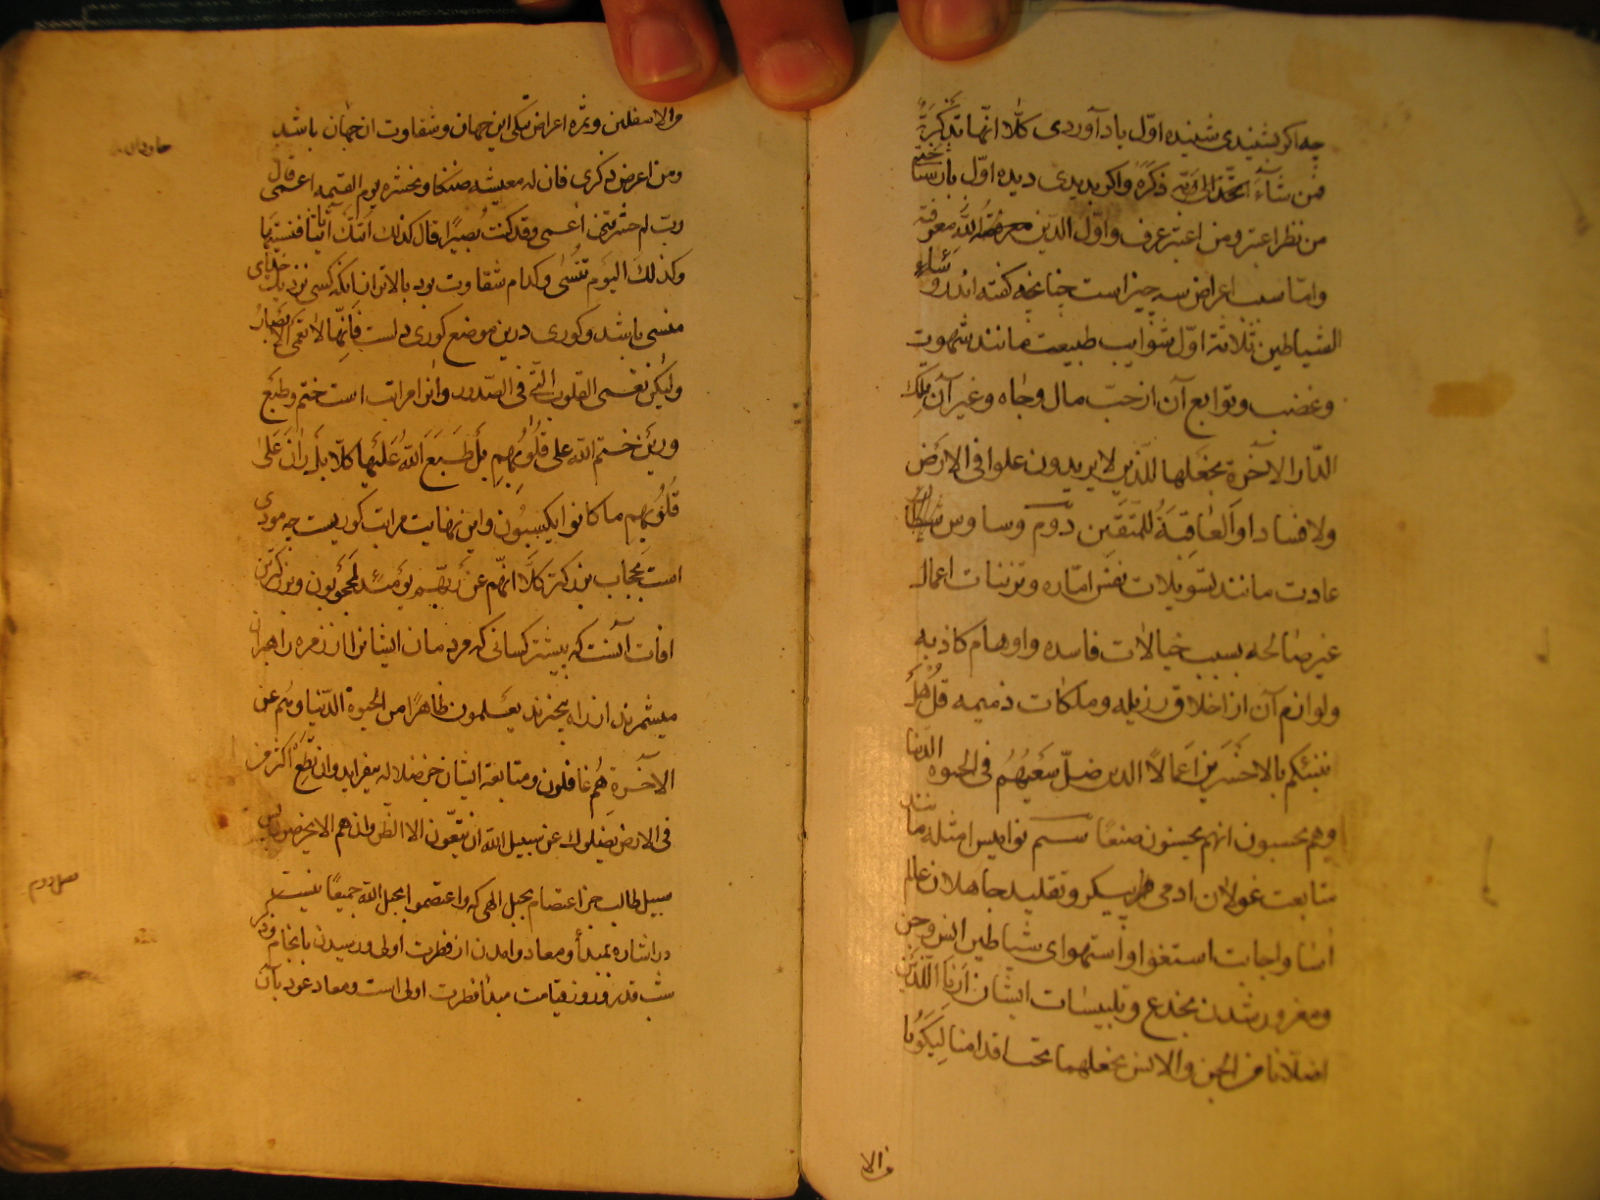 چه اکر بشنیدی شنیده اوّل یاد آوردی کَلّا انّها تَذکِرَةٌ
فمن شآءَ اتّخذ الی ربّه ذکرَهُ واکر بدیدی دیده اوّل باز شناختی
من نظر اعتبر و من اعتبر عرف و اوّل الدّین معرفة الله معرفة
و امّا سبب اعراض سه چیز است چنانچه کفته اند رؤساء
الشیاطین ثلاثة اوّل شوایب طبیعت مانند شهوت
و غضب و توابع آن از حبّ مال و جاه و غیر آن تلک
الدّار الآخرة نجعلها للذین لا یریدون علوا فی الارض
ولا فسادا والعاقبةُ للمتّقین دوم وساوس شیطان
عادت مانند تسویلات نفس امّاره و تزیینات اعمال
غیر صالحه بسبب خیالات فاسده و اوهام کاذبه
و لوازم آن از اخلاق رذیله و ملکات ذمیمه قُل هَل
ننبّئکم بالاخسَرین اعمالاً الذین ضلّ سَعیُهُم فی الحیوة الدّنیا
وهم یحسبون انهم یحسنون صنعًا سیم نوامیس امثله مانند
متابعت غولان ادمی پیکر و تقلید جاهلان عالم
آسا و اجابت استغوا و استهوای شیاطین انس و جن
و مغرور شدن بخدع و تلبیسات ایشان اَرِنَا الّذَین
اضلّانا من الجن والانس نجعلهما تحت اقدامنا لِیَکُونا
من الا
من الاسفلین و ثمره اعراض تنکی این جهان و شقاوت ان جهان باشد
ومن اعرض ذکری فان له معیشه ضنکا و نحشره یوم القیمه اعمی قال
ربّ لم حشرتنی اعمی وقد کنت بَصیرًا قال کذلک اتتک آیاتنا فنسیتها
وکذلک الیوم تنسی و کدام شقاوت بود بالاتر از انکه کسی نزدیک خدای
منسی باشد و کوری درین موضع کوری دلست فانّها لا تعمی الابصارُ
ولیکن تعمی القلوب التی فی الصّدور و انرا مراتب است ختم و طبَع
و رین خَتَم الله علی قُلُوبِهِم بل طَبَعَ اللّهُ عَلَیها کلّا بَل رانَ عَلی
قُلُوبِهِم ما کانوا یکسِبُون و این نهایت مراتب کوریست چه مودی
است بحجاب بزرکتر کَلّا انّهم عن رَبّهِم یومئذٍ لمحجُوبُون و بزرکترین
افات آنست که بیشتر کسانی که مردمان ایشانرا از زمره راهبران
میشمرند از راه بیخبرند یعلمون ظاهرًا من الحیوة الدّنیا وهُم عن
الآخرة هُم غافلون و متابعت ایشان جز ضلاله نیفزاید وان تطع اکثر من
فی الارض یضلوک عن سبیل الله ان یتّبعون الا الظن وان هم الا یخرصون پس
سبیل طالب جز اعتصام بحبل الهی که واعتصموا بحبل الله جمیعًا نیست
در اشاره بمبدأ و معاد و آمدن از فطرت اولی و رسیدن بانجام و ذکر
شب قدر و روز قیامت مبدأ فطرت اولی است و معاد عود بآن
فصل دوم